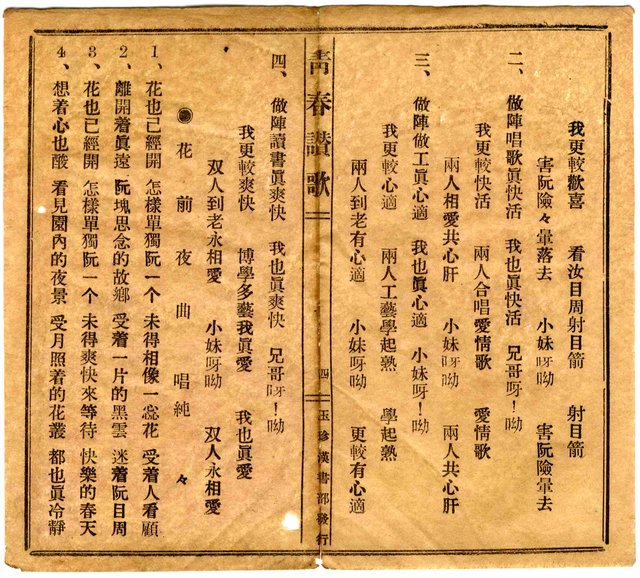 我更較歡喜　看汝目周射目箭　射目箭
害阮險々暈落去　小妹呀呦　害阮險暈去
二、做陣唱歌眞快活　我也眞快活　兄哥呀！呦
我更較快活　兩人合唱愛情歌　愛情歌
兩人相愛共心肝　小妹呀呦　兩人共心肝
三、做陣做工眞心適　我也眞心適　小妹呀！呦
我更較心適　兩人工藝學起熟　學起熟
兩人到老有心適　小妹呀呦　更較有心適
靑春讃歌　四　玉珍漢書部發行
四、做陣讀書眞爽快　我也眞爽快　兄哥呀！呦
我更較爽快　博學多藝我眞愛　我也眞愛
双人到老永相愛　小妹呀呦　双人永相愛
花前夜曲　唱純々
1、花也已經開　怎樣單獨阮一个　未得相像一蕊花　受着人看顧
2、離開着眞遠　阮塊思念的故鄉　受着一片的黑雲　迷着阮目周
3、花也已經開　怎樣單獨阮一个　未得爽快來等待　快樂的春天
4、想着心也酸　看見園內的夜景　受月照着的花叢　都也眞冷靜